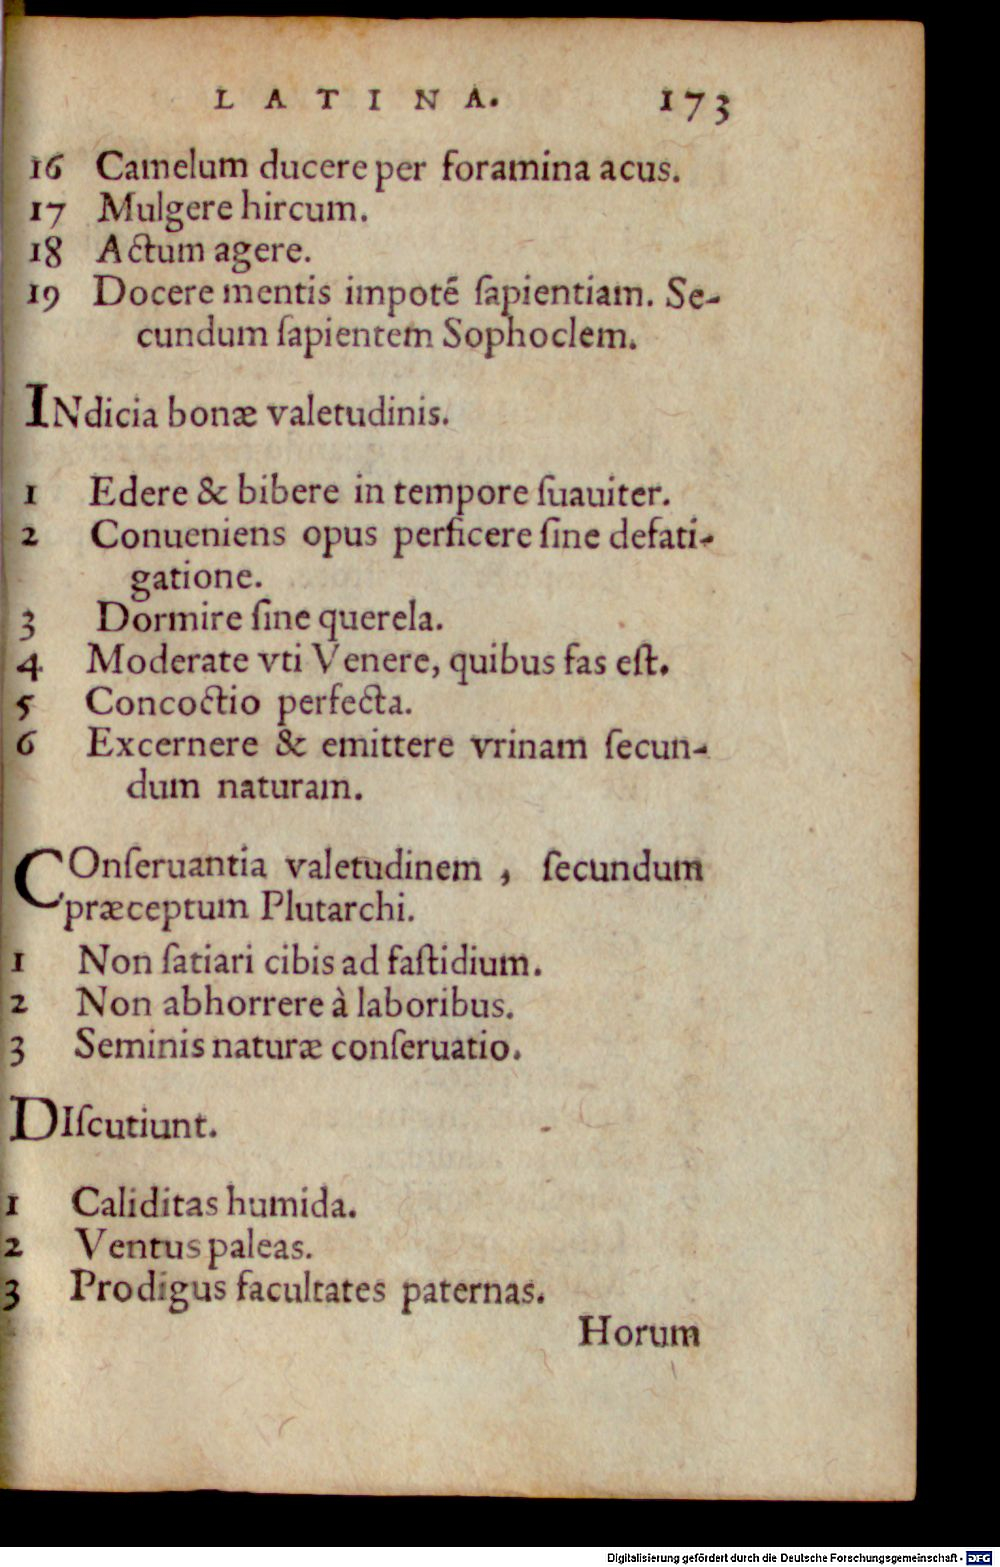 LATINA. 173
16 Camelum ducere per foramina acus.
17 Mulgere hircum.
18 Actum agere.
19 Docere mentis impotē ſapientiam. Se-
cundum ſapientem Sophoclem.
INdicia bonæ valetudinis.
1 Edere & bibere in tempore ſuauiter.
2 Conueniens opus perficere ſine defati-
gatione.
3 Dormire ſine querela.
4 Moderate vti Venere, quibus fas eſt.
5 Concoctio perfecta.
6 Excernere & emittere vrinam ſecun-
dum naturam.
COnſeruantia valetudinem , ſecundum
præceptum Plutarchi.
1 Non ſatiari cibis ad faſtidium.
2 Non abhorrere à laboribus.
3 Seminis naturæ conſeruatio.
DIſcutiunt.
1 Caliditas humida.
2 Ventus paleas.
3 Prodigus facultates paternas.
Horum
Digitalisierung gefördert durch die Deutsche Forschungsgemeinschaft - DFG